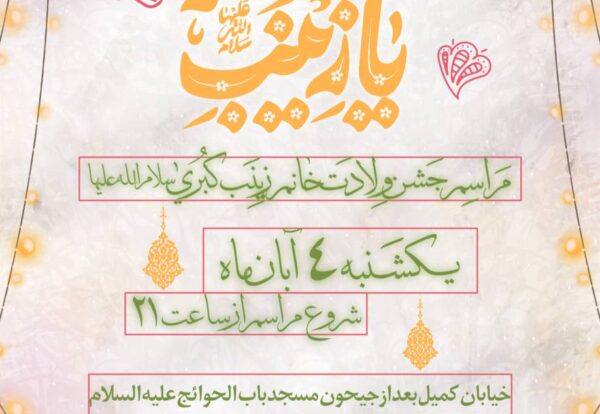 یا زینب سلام الله علیها
مراسم جشن ولادت خانم زینب کبری سلام الله علیها
یکشنبه ۴ آبان ماه
شروع مراسم از ساعت ۲۱
خیابان کمیل بعد از جیحون مسجد باب الحوائج علیه السلام